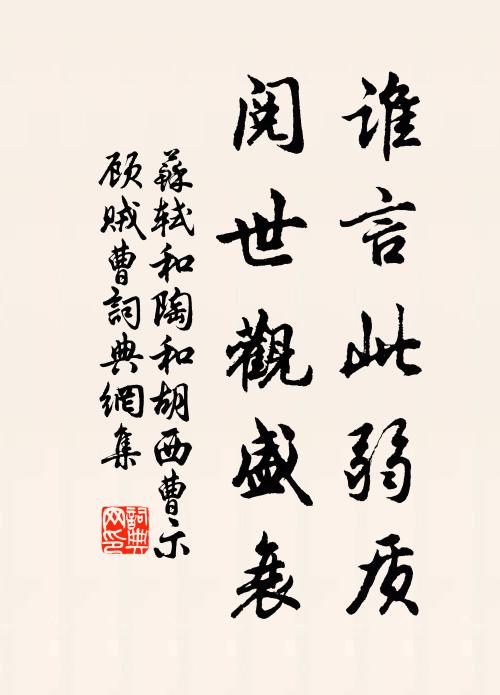 谁言此弱质
阅世觀盛衰
蘇軾和陶和胡西曹示
顾贼曹詞典網集
詞典网印